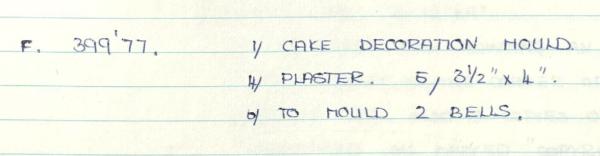 F. 399'77. 1/ CAKE DECORATION MOULD.
4/ PLASTER. 5, 3½" x 4".
9/ TO MOULD 2 BELLS.